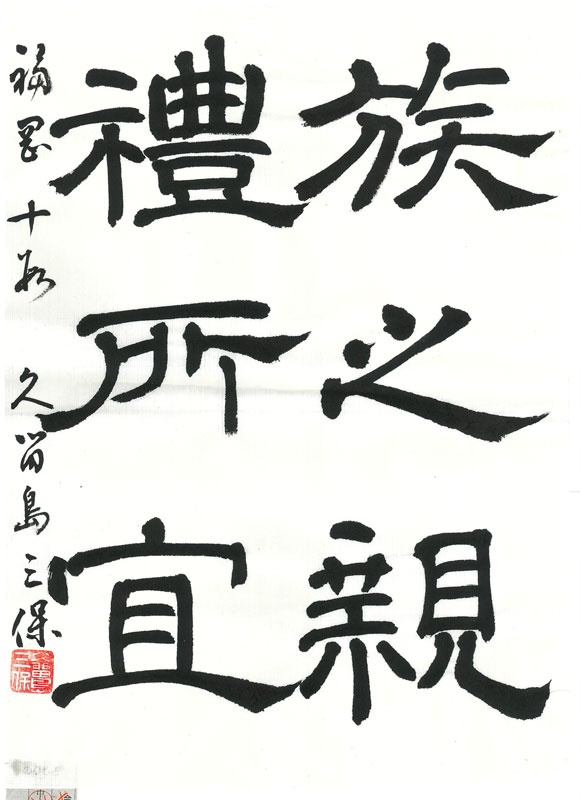 族之親
禮所宜
福岡 十段 久留島三保